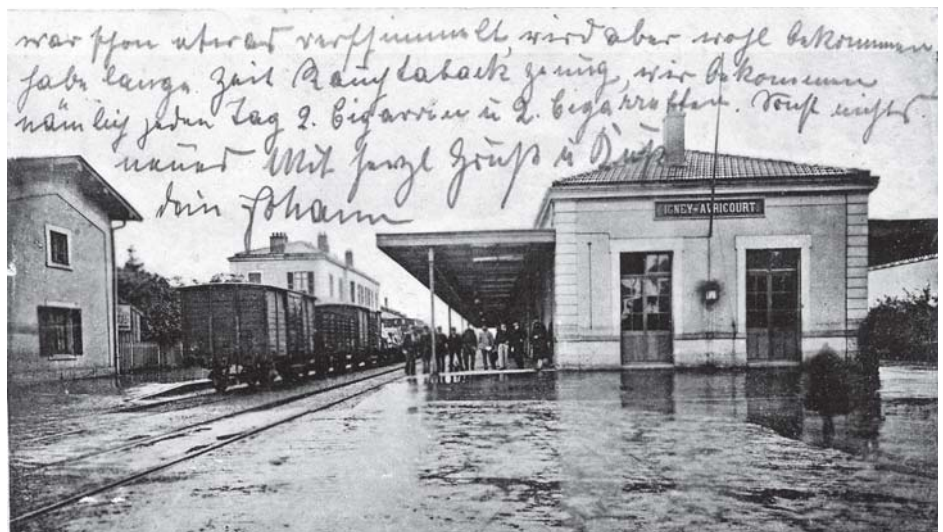 war schon etwas verschimmelt, wird aber wohl bekommen,
habe lange Zeit Rauchtaback genug, wir bekommen
nämlich jeden Tag 2. Cigarren u 2. Cigaretten. Sonst nichts
neues Mit herzl Gruß u Kuß
dein Johann
IGNEY-AVRICOURT